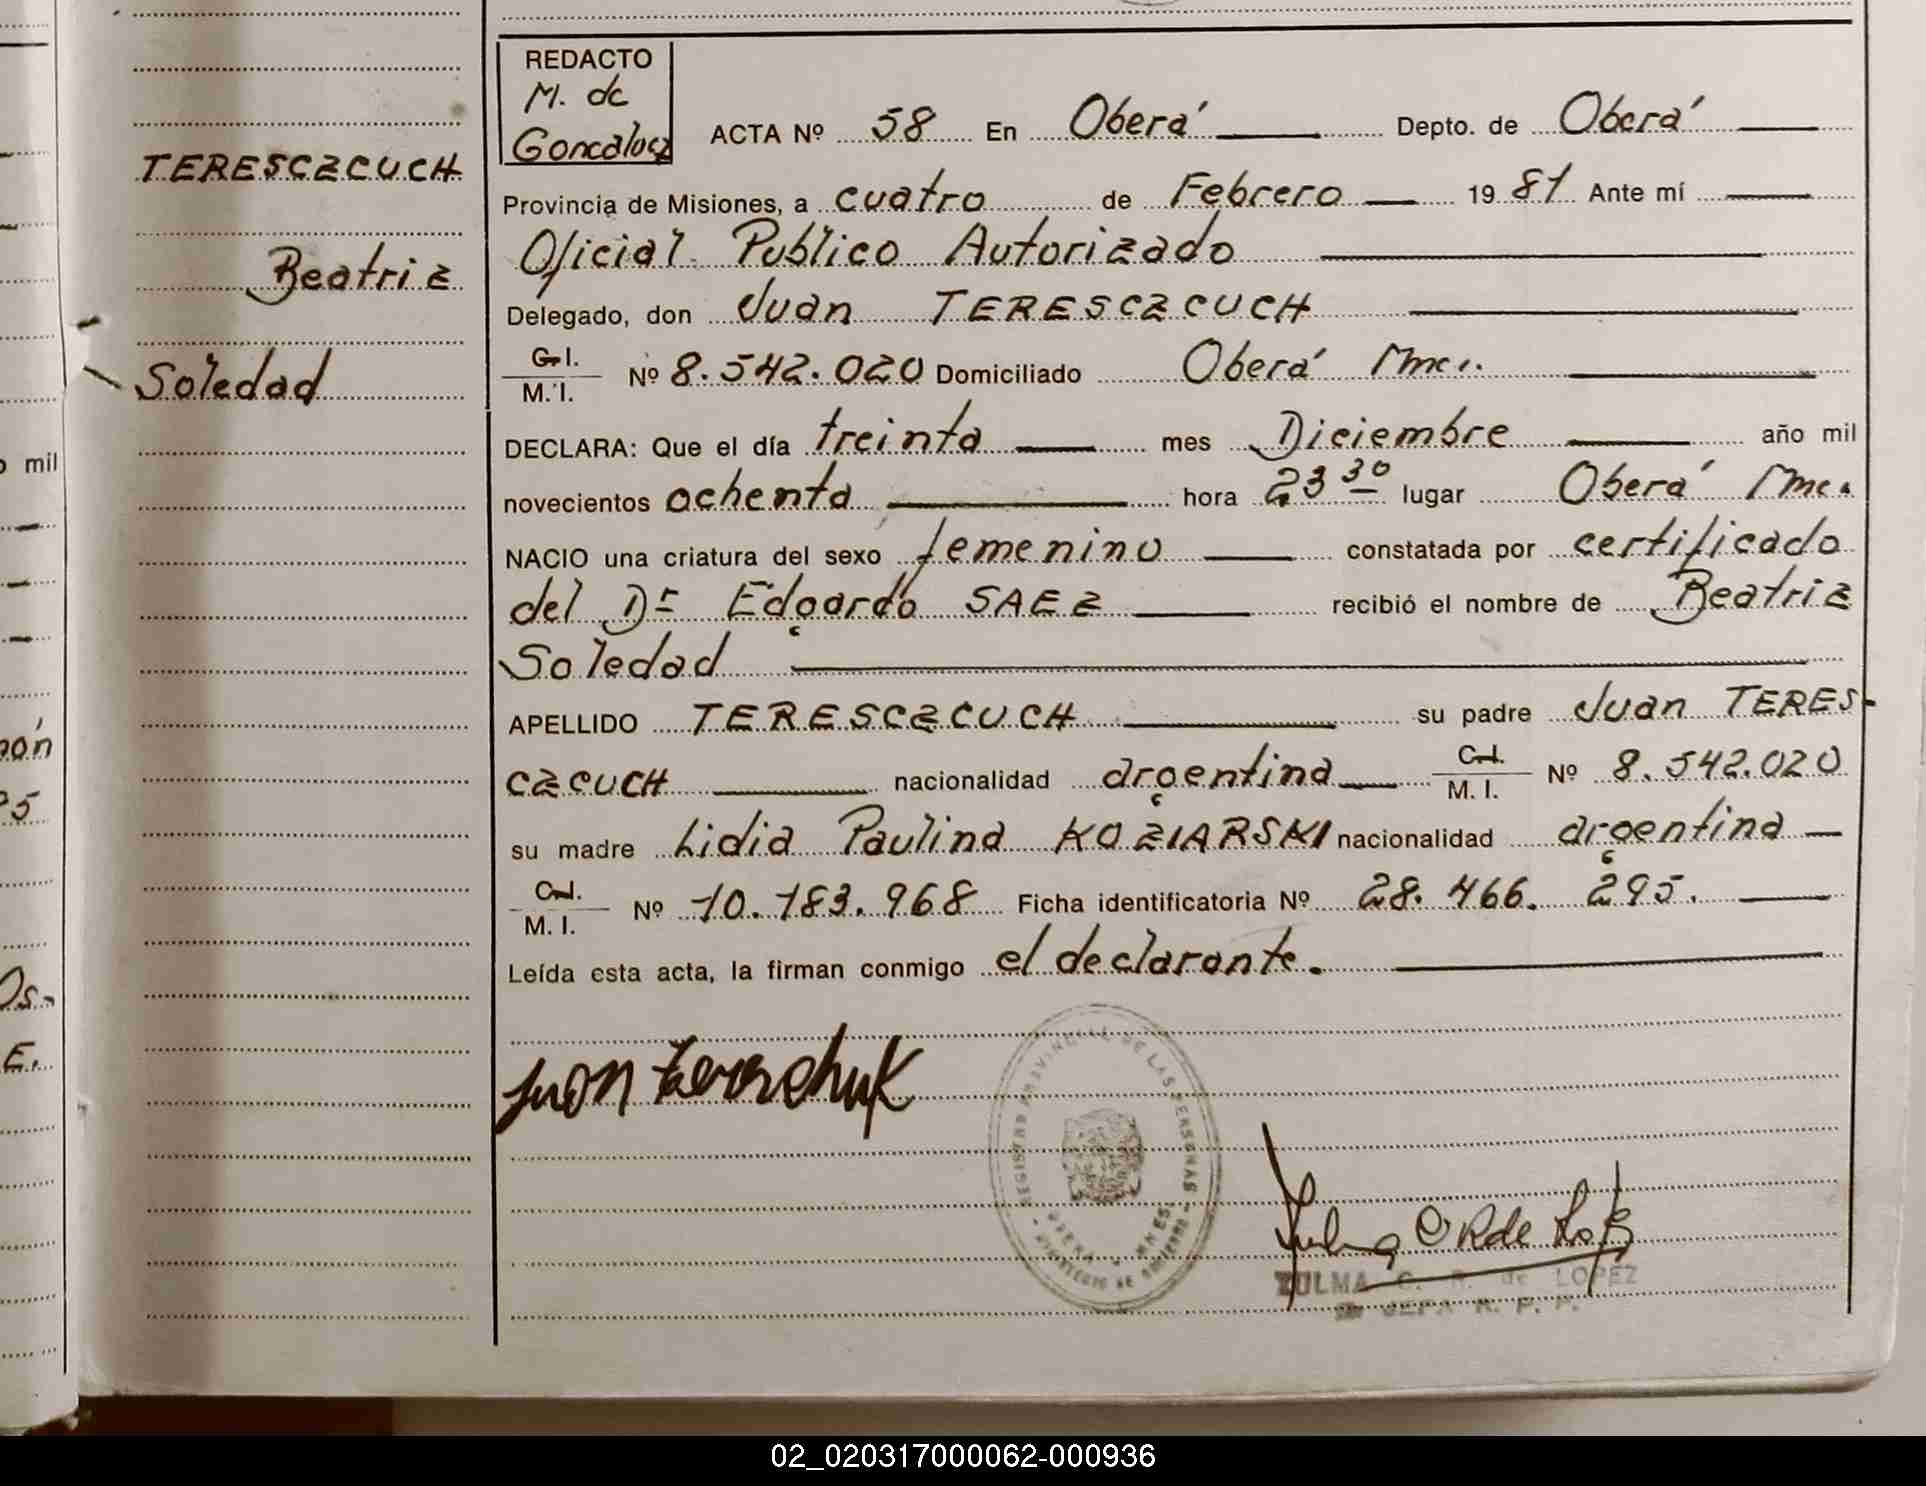 REDACTO
M. de
Goncalvez
ACTA Nº 58 En Oberá Depto. de Oberá
TERESCZCUCH
Provincia de Misiones, a cuatro de Febrero 1981 Ante mí
Oficial Publico Autorizado
Beatriz
Delegado, don Juan TERESCZCUCH
Soledad
C.I.
M.I. Nº 8.542.020 Domiciliado Oberá Mnes.
DECLARA: Que el día treinta mes Diciembre año mil
novecientos ochenta hora 23 30 lugar Oberá Mnes.
NACIO una criatura del sexo femenino constatada por certificado
del Dr Edgardo SAEZ recibió el nombre de Beatriz
Soledad
APELLIDO TERESCZCUCH su padre Juan TERES-
CZCUCH nacionalidad argentina C.I. M.I. Nº 8.542.020
su madre Lidia Paulina KOZIARSKI nacionalidad argentina
C.I. M.I. Nº 10.183.968 Ficha identificatoria Nº 28.466.295.
Leída esta acta, la firman conmigo el declarante.
REGISTRO PROVINCIAL DE LAS PERSONAS
OBERA - MNES.
MINISTERIO DE GOBIERNO
ZULMA C. R. de LOPEZ
JEFA R. P. P.
o mil
05
Os.
E.
02_020317000062-000936